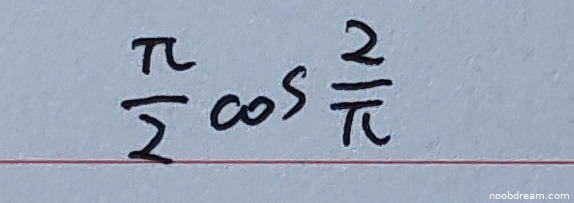 π/2 cos 2/π
noobdream.com